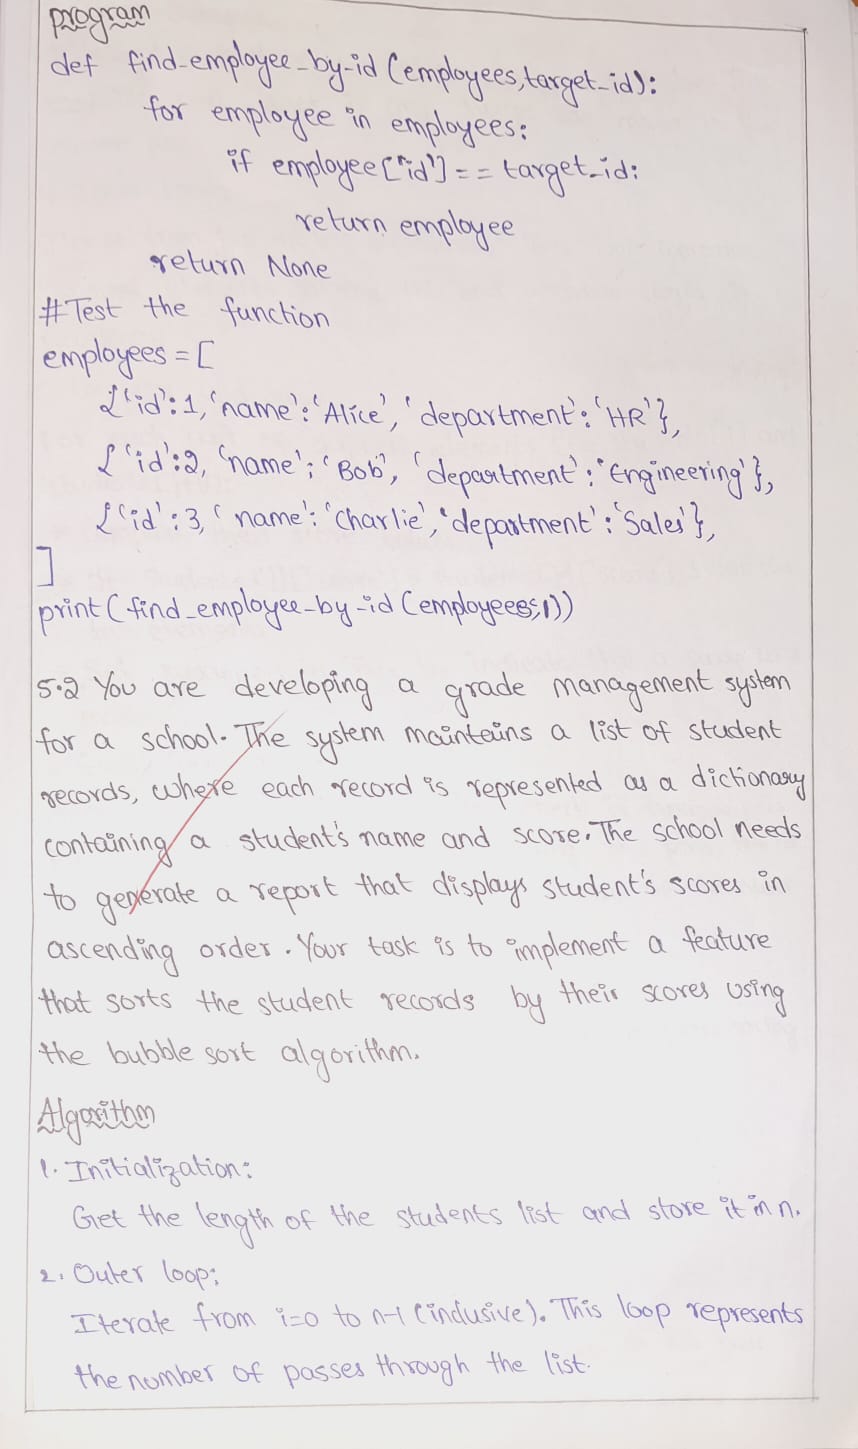 program
def find-employee-by-id (employees,target-id):
for employee in employees:
if employee['id'] == target-id:
return employee
return None
#Test the function
employees = [
{'id':1, 'name':'Alice', 'department':'HR'},
{'id':2, 'name':'Bob', 'department':'Engineering'},
{'id':3, 'name':'Charlie', 'department':'Sales'},
]
print(find-employee-by-id (employees,1))
5.2 You are developing a grade management system
for a school. The system maintains a list of student
records, where each record is represented as a dictionary
containing a student's name and score. The school needs
to generate a report that displays student's scores in
ascending order. Your task is to implement a feature
that sorts the student records by their scores using
the bubble sort algorithm.
Algorithm
1. Initialization:
Get the length of the students list and store it in n.
2. Outer loop:
Iterate from i=0 to n-1 (inclusive). This loop represents
the number of passes through the list.